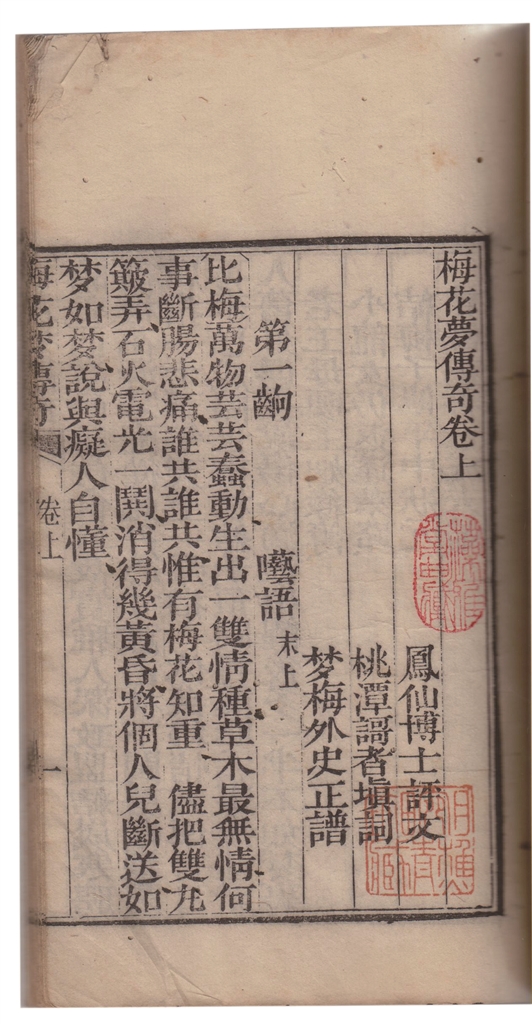 梅花夢傳奇卷上
鳳仙博士評文
桃潭謌者塡詞
梦梅外史正譜
第一齣 囈語 末上
比梅萬物芸芸蠢動生出一雙情種草木最無情何
事斷腸悲痛誰共誰共惟有梅花知重 儘把雙丸
簸弄石火電光一鬨消得幾黃昏將個人兒斷送如
梦如梦說與癡人自懂
梅花梦傳奇 卷上 一